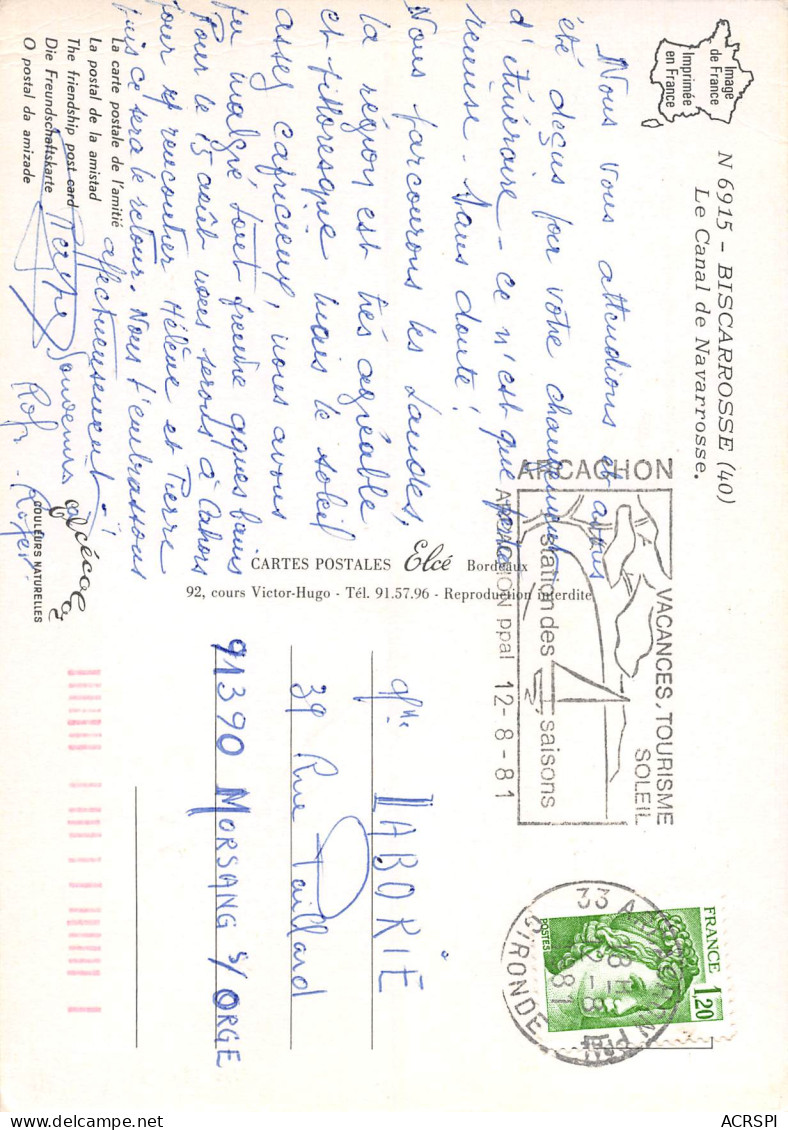 Image
de France
Imprimée
en France
N 6915 - BISCARROSSE (40)
Le Canal de Navarrosse.
Nous vous attendions et avons
été déçus par votre changement
d'itinéraire - ce n'est que partie
remise - sans doute !
Nous parcourons les Landes,
la région est très agréable
et pittoresque mais le soleil
assez capricieux, nous avons
pu malgré tout prendre qques bains
Pour le 15 août nous serons à Cahors
pour y rencontrer Hélène et Pierre
puis ce sera le retour. Nous t'embrassons
affectueusement !
Souvenirs
Roger
La carte postale de l'amitié
La postal de la amistad
The friendship post card
Die Freundschaftskarte
O postal da amizade
elcécolor
COULEURS NATURELLES
CARTES POSTALES Elcé Bordeaux
92, cours Victor-Hugo - Tél. 91.57.96 - Reproduction interdite
ARCACHON
VACANCES, TOURISME
SOLEIL
station des 4 saisons
ARCACHON ppal 12-8-81
33 ARCACHON PPAL
18 H
12-8
1981
GIRONDE
FRANCE 1,20
POSTES
Mme LABORIE
39 Rue Paillard
91390 MORSANG S/ORGE
ACRSPI